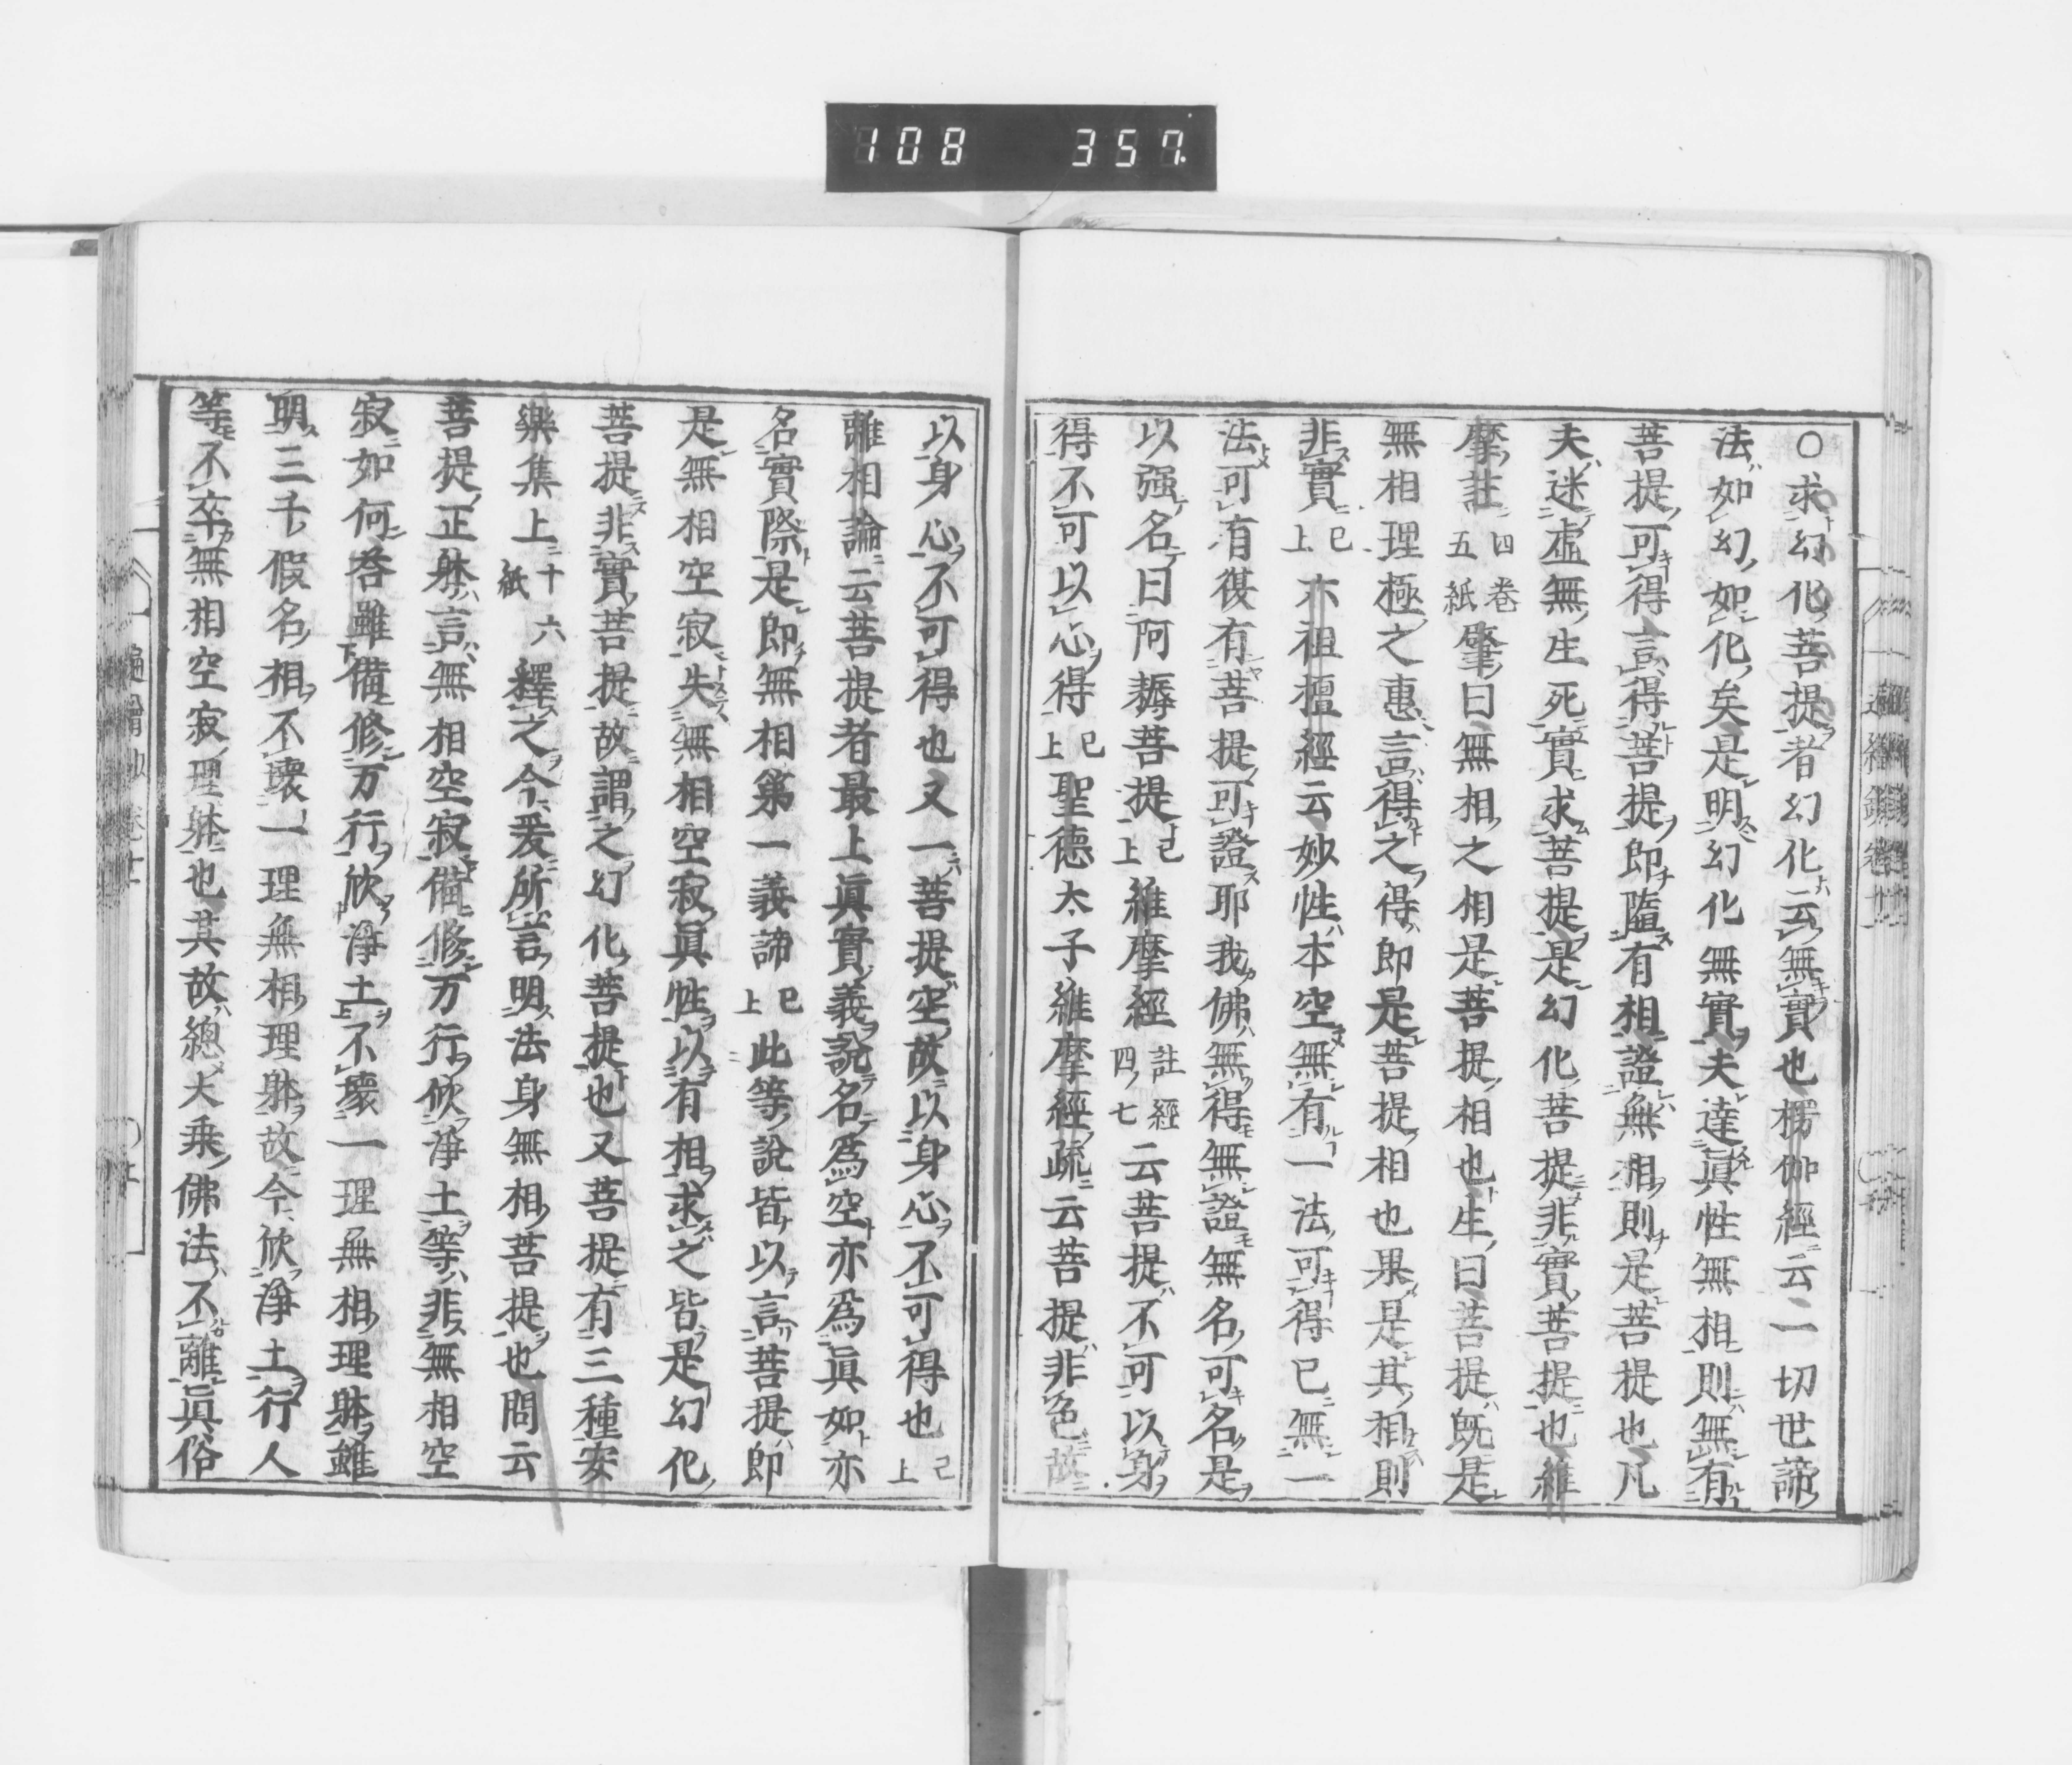 108 357
○求幻化菩提者幻化云無實也楞伽經云一切世諦
法如幻如化矣是明幻化無實夫達眞性無相則無有
菩提可得言得菩提即墮有相證無相則是菩提也凡
夫迷虛無生死實求菩提是幻化菩提非實菩提也維
摩註四卷五紙肇曰無相之相是菩提相也生曰菩提既是
無相理極之惠言得之得即是菩提相也果是其相則
非實已上六祖檀經云妙性本空無有一法可得已無一
法可有復有菩提可證耶我佛無得無證無名可名是
以强名曰阿耨菩提已上維摩經註經四七云菩提不可以身
得不可以心得已上聖德太子維摩經疏云菩提非色故
以身心不可得也又一菩提空故以身心不可得也已上
離相論云菩提者最上眞實義說名爲空亦爲眞如亦
名實際是即無相第一義諦已上此等說皆以言菩提即
是無相空寂失無相空寂眞性以有相求之皆是幻化
菩提非實菩提故謂之幻化菩提也又菩提有三種安
樂集上十六紙釋之今爰所言明法身無相菩提也問云
菩提正躰言無相空寂備修万行欣淨土等非無相空
寂如何荅雖備修万行欣淨土不壞一理無相理躰雖
明三千假名相不壞一理無相理躰故今欣淨土行人
等不卒無相空寂理躰也其故總大乘佛法不離眞俗